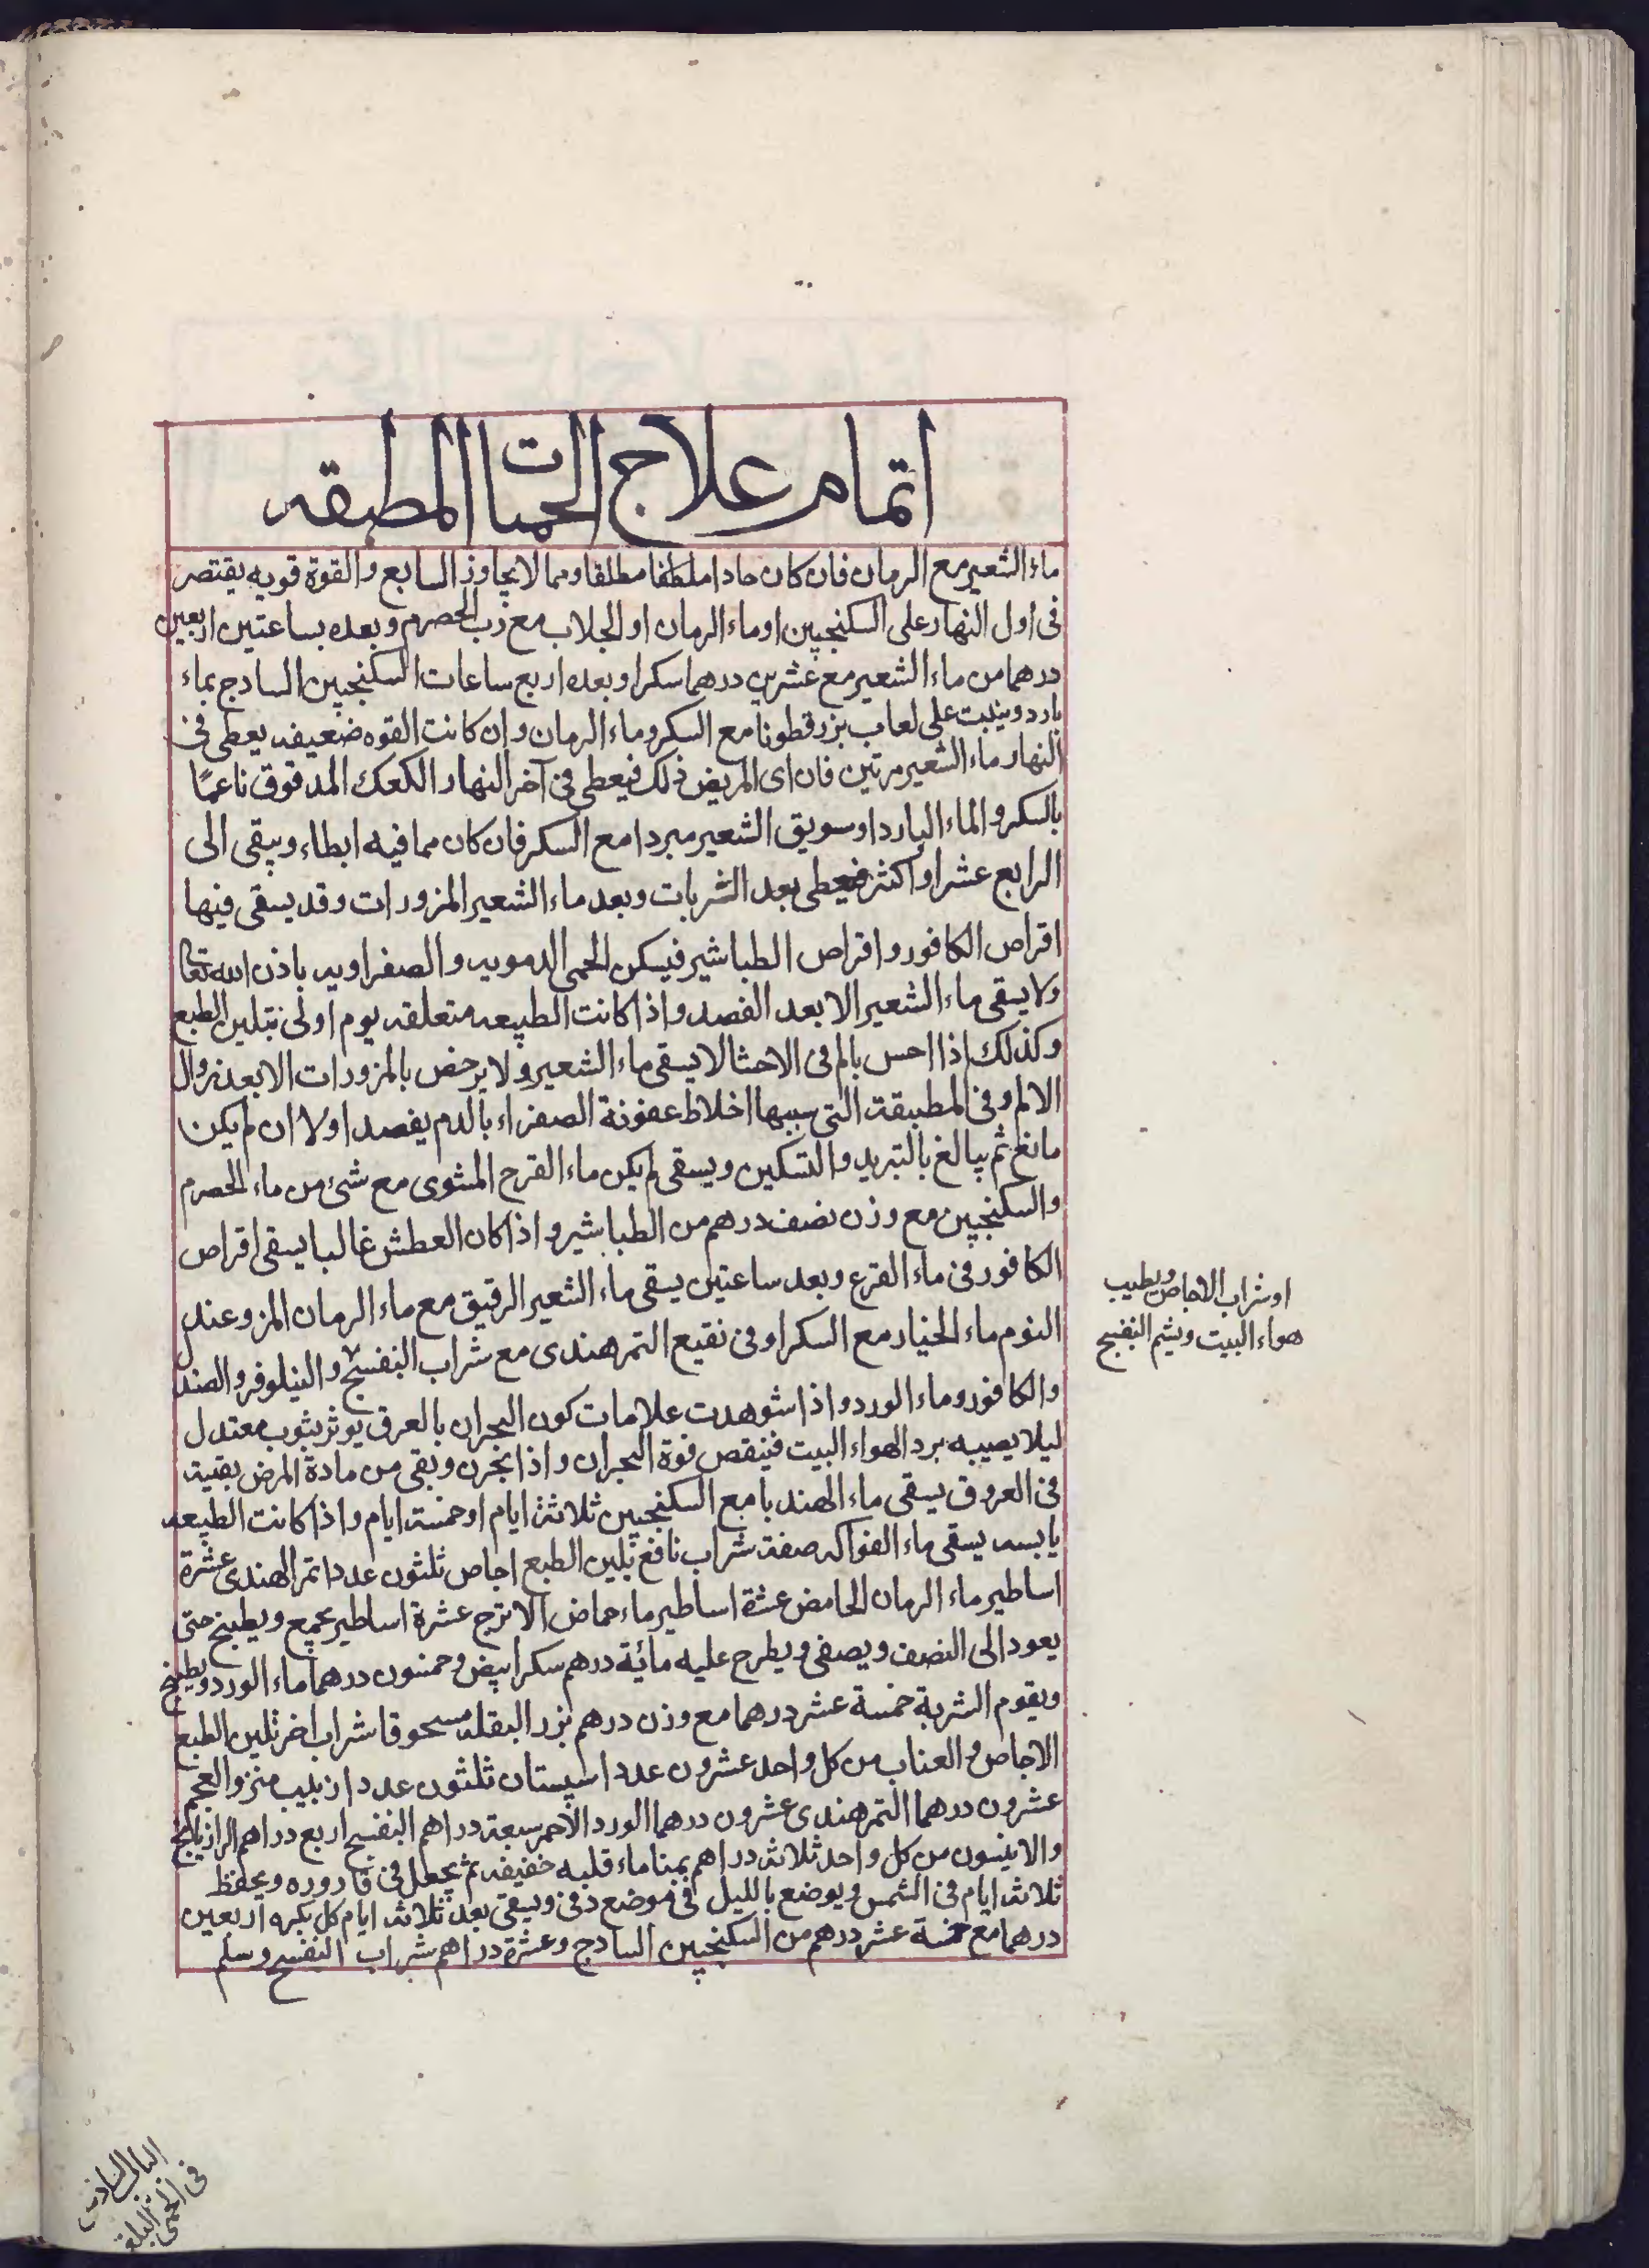 اتمام علاج الحميات المطبقه
ماء الشعير مع الرمان فان كان حادا ملطفا مطلقا ومما لا يجاوز السابع والقوة قويه يقتصر
فى اول النهار على السكنجبين او ماء الرمان او الجلاب مع رب الحصرم وبعده بساعتين اربعين
درهما من ماء الشعير مع عشرين درهما سكرا وبعده اربع ساعات السكنجبين السادج بماء
بارد ويثبت على لعاب بزرقطونا مع السكر وماء الرمان وان كانت القوه ضعيفه يعطى فى
النهار ماء الشعير مرتين فان اى المريض ذلك فيعطى فى آخر النهار الكعك المدقوق ناعمًا
بالسكر والماء البارد او سويق الشعير مبردا مع السكر فان كان مما فيه ابطاء ويبقى الى
الرابع عشر او اكثر فيعطى بعد الشربات وبعد ماء الشعير المزورات وقد يسقى فيها
اقراص الكافور واقراص الطباشير فيسكن الحمى الدمويه والصفراويه باذن الله تعالى
ولا يسقى ماء الشعير الا بعد الفصد واذا كانت الطبيعه متعلقه يوم اولى بتلين الطبع
وكذلك اذا احس بالم فى الاحشا لا يسقى ماء الشعير ولا يرخص بالمزورات الا بعد زوال
الالم وفى المطبقة التى سببها اخلاط عفونة الصفراء بالدم يفصد اولا ان لم يكن
مانع ثم يبالغ بالتبريد والتسكين ويسقى لم يكن ماء القرح المشوى مع شئ من ماء الحصرم
والسكنجبين مع وزن نصف درهم من الطباشير واذا كان العطش غالبا يسقى اقراص
الكافور فى ماء القرع وبعد ساعتين يسقى ماء الشعير الرقيق مع ماء الرمان المز وعند
النوم ماء الخيار مع السكر او فى نقيع التمر هندى مع شراب البنفسج والنيلوفر والصندل
والكافور وماء الورد واذا شوهدت علامات كون البحران بالعرق يوثر بثوب معتدل
ليلا يصيبه برد الهواء البيت فينقص قوة البحران واذا بحرن وبقى من مادة المرض بقية
فى العروق يسقى ماء الهندبا مع السكنجبين ثلاثة ايام او خمسة ايام واذا كانت الطبيعه
يابسه يسقى ماء الفواكه صفة شراب نافع تلين الطبع اجاص ثلثون عددا تمر الهندى عشرة
اساطير ماء الرمان الحامض عشرة اساطير ماء حماض الاترج عشرة اساطير يجمع ويطبخ حتى
يعود الى النصف ويصفى ويطرح عليه مائة درهم سكر ابيض وخمسون درهما ماء الورد ويطبخ
ويقوم الشربة خمسة عشر درهما مع وزن درهم بزر البقله مسحوقا شراب اخر تلين الطبع
الاجاص والعناب من كل واحد عشرون عددا سپستان ثلثون عددا زبيب منزوع العجم
عشرون درهما التمر هندى عشرون درهما الورد الاحمر سبعة دراهم البنفسج اربع دراهم الرازيانج
والانيسون من كل واحد ثلاثة دراهم بمنا ماء قلبه خفيفه ثم يجعل فى قاروره ويحفظ
ثلاثة ايام فى الشمس ويوضع بالليل فى موضع دفى ويسقى بعد ثلاثة ايام كل بكره اربعين
درهما مع خمسة عشر درهم من السكنجبين السادج وعشرة دراهم شراب البنفسج وسلم
او شراب الاجاص ويطيب
هواء البيت ويشم البنفسج
فى الحمى